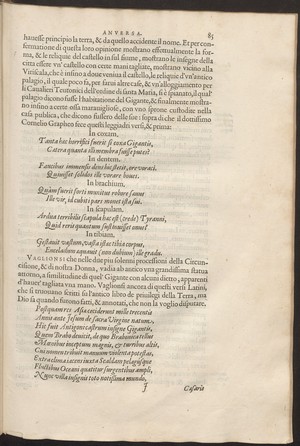 ANVERSA. 85
hauesse principio la terra, & da quello accidente il nome. Et per con-
fermatione di questa loro opinione mostrano essettualmente la for-
ma, & le reliquie del castello in sul fiume, mostrano le insegne della
città essere vn' castello con certe mani tagliate, mostrano vicino alla
Viriscala, che è infino a doue veniua il castello, le reliquie d'vn'antico
palagio, il quale poco fa, per farui altre case, & vn'alloggiamento per
li Caualieri Teutonici dell'ordine di santa Maria, si è spianato, il qual'
palagio dicono fusse l'habitatione del Gigante, & finalmente mostra-
no infino a certe ossa marauigliose, con vno spetto custodite nella
casa publica, che dicono fussero delle sue: sopra di che il dottissimo
Cornelio Grapheo fece questi leggiadri versi, & prima:
In coxam.
Tanta hac horrifici fuerit si coxa Gigantis,
Cætera quanta illi membra fuisse putes?
In dentem.
Faucibus immensis dens hic stetit, ore voraci.
Quiuisset solidos ille vorare boues.
In brachium,
Quàm fuerit forti inuictus robore saune
Ille vir, id cubiti pars monet ista sui.
In scapulam.
Ardua terribilis scapula hac est (crede) Tyranni,
Quid rerit quantum sustinuisset onus?
In tibiam.
Gestauit vastum, vasta isthæc tibia corpus,
Enceladum æquauit (non dubium) ille gradu.
VAGLIONSI che nelle due piu solenni processioni della Circun-
cisione, & di nostra Donna, vadia ab antico vna grandissima statua
attorno, a similitudine di quel' Gigante con alcuni dietro, equali par
d'hauer' tagliata vna mano. Vaglionsi ancora di questi versi Latini,
che si trouano scritti in l'antico libro de priuilegi della Terra, ma
Dio sa quando furono fatti, & annotati, che non la voglio disputare.
Postquam res Asiæ cecidere mille trecentis
Annis ante Jesum de sacra Virgine natum,
Hic fuit Antigoni castrum insigne Gigantis,
Quem Brabo deuicit, de quo Brabantica tellus
Mœnibus inceptum magnis, & turribus altis,
Cui nomen tribuit manuum violenta potestas,
Extra climata iacens iuxta Scaldam pelagusque
Fluctibus Oceani quatitur surgentibus ampli,
Nunc villa insignis toto notissima mundo,
f Cæsaris